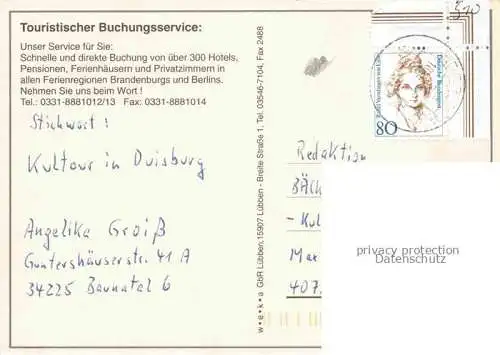 Touristischer Buchungsservice:
Unser Service für Sie:
Schnelle und direkte Buchung von über 300 Hotels,
Pensionen, Ferienhäusern und Privatzimmern in
allen Ferienregionen Brandenburgs und Berlins.
Nehmen Sie uns beim Wort !
Tel.: 0331-8881012/13 Fax: 0331-8881014
Stichwort:
Kultour in Duisburg
Angelika Groiß
Guntershäuserstr. 41 A
34225 Baunatal 6
w•e•k•a GbR Lübben, 15907 Lübben - Breite Straße 1, Tel. 03546-7104, Fax 2488
Deutsche Bundespost
80
Redaktion
BÄCK
- Kul
Max
407.
privacy protection
Datenschutz